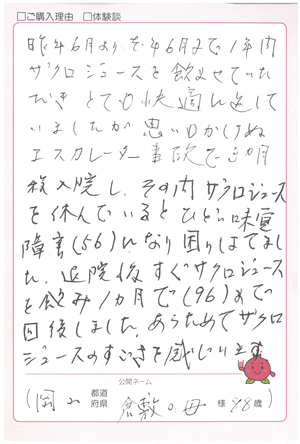 □ご購入理由 □体験談
昨年6月より本年6月まで1年間
ザクロジュースを飲ませていた
だき とても快適に過して
いましたが思いもかけぬ
エスカレーター事故で3ヶ月
程入院し、その間ザクロジュース
を休んでいるとひどい味覚
障害(56)になり困りはてまし
た。退院後すぐザクロジュース
を飲み1ヵ月で(96)まで
回復しました。あらためてザクロ
ジュースのすごさを感じています
公開ネーム
(岡山 都道府県 倉敷の母 様 78歳)